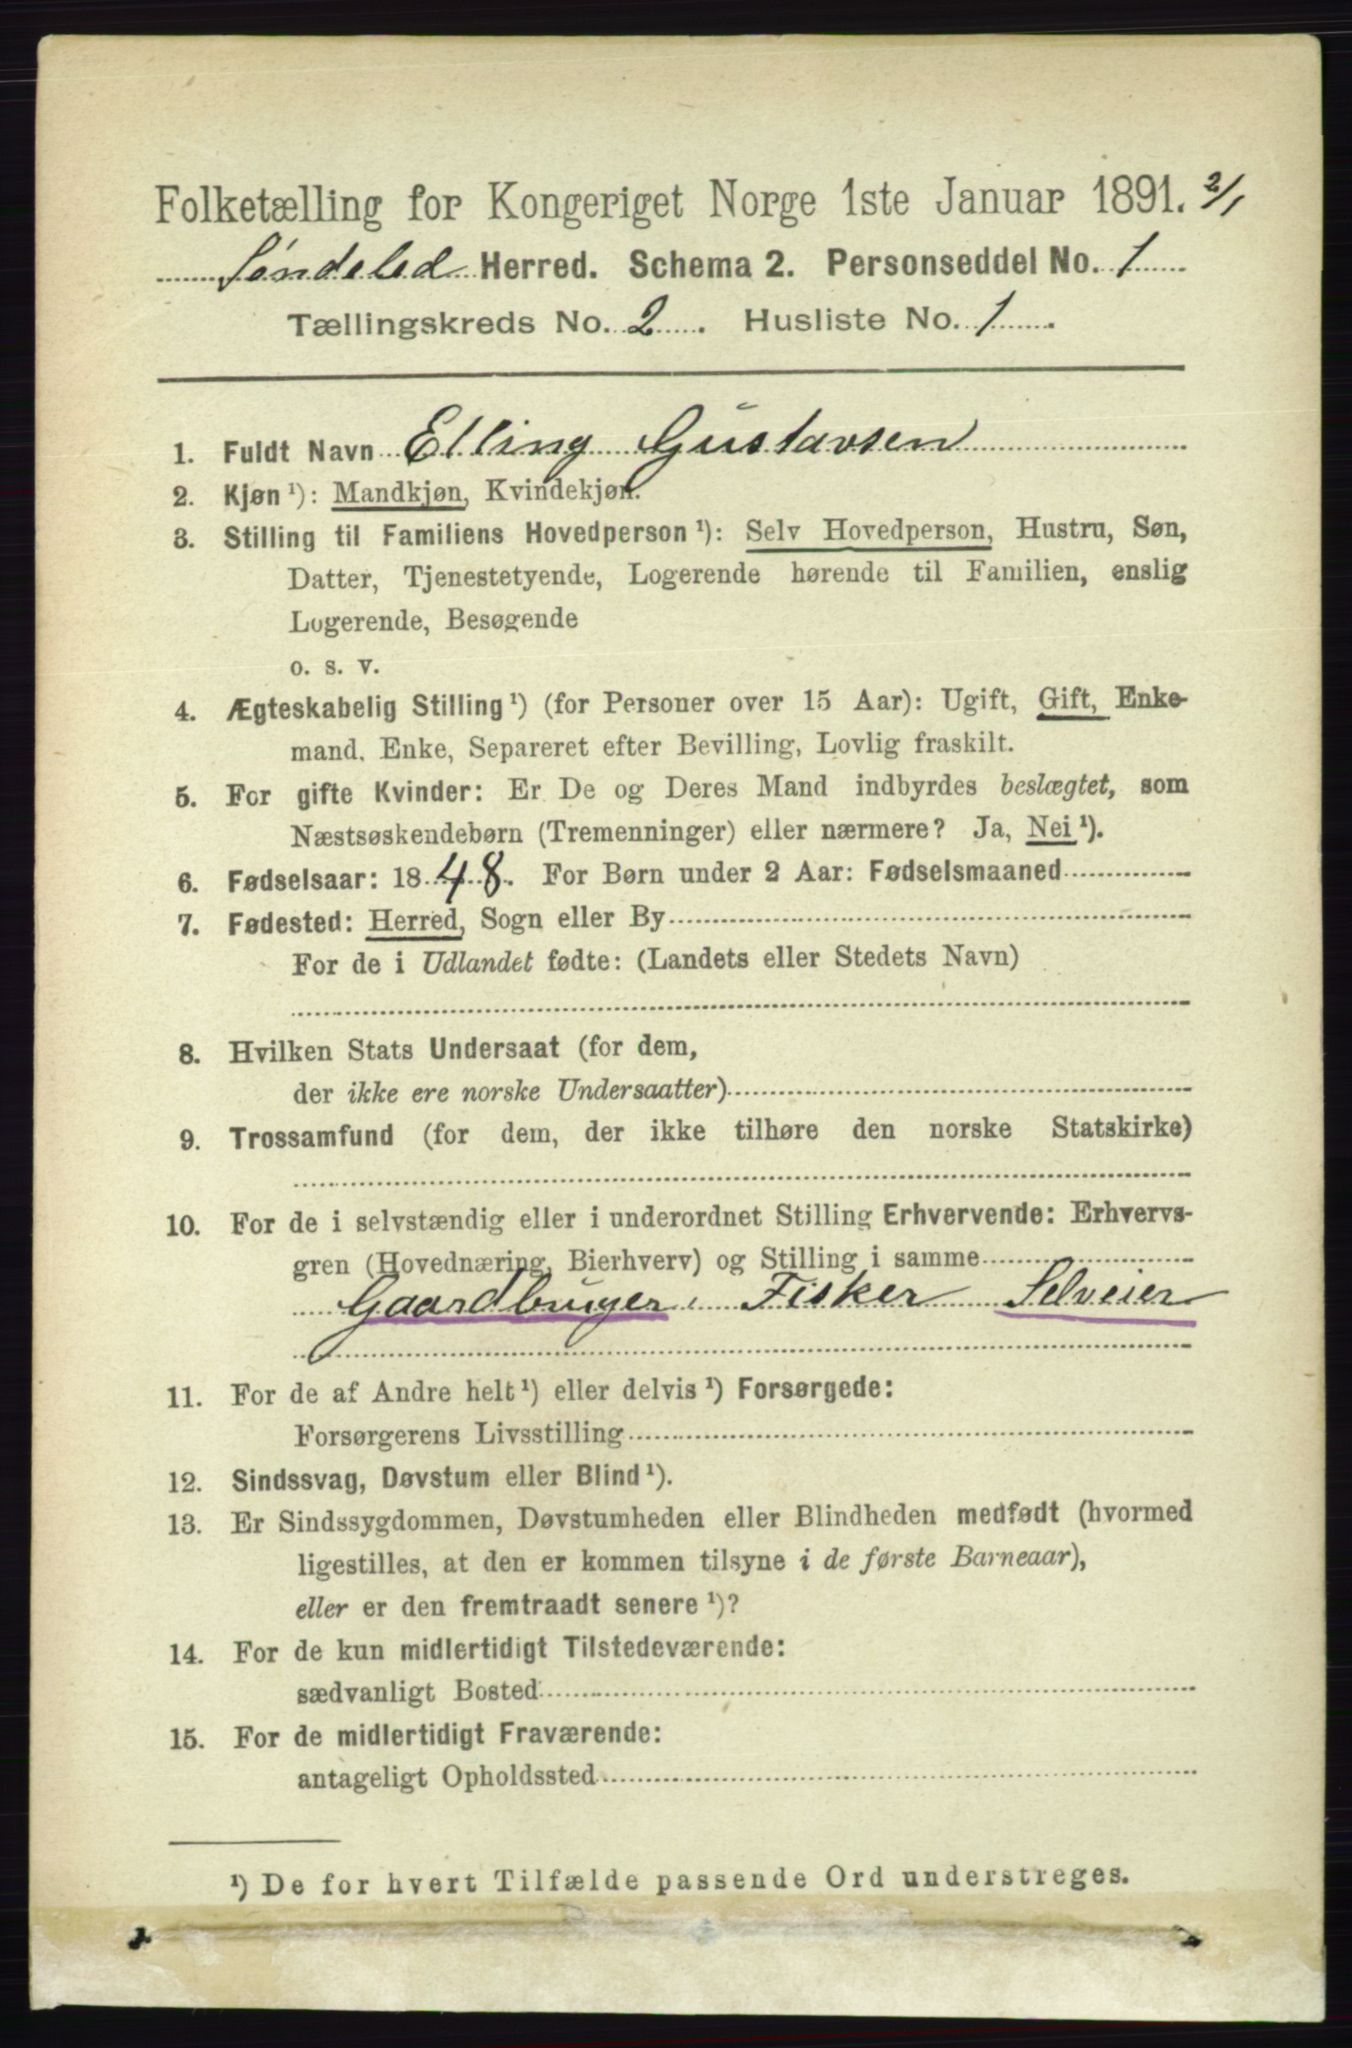 Folketælling for Kongeriget Norge 1ste Januar 1891. 2/1
Søndeled Herred. Schema 2. Personseddel No. 1
Tællingskreds No. 2. Husliste No. 1.
1. Fuldt Navn Elling Gustavsen
2. Kjøn ¹): Mandkjøn, Kvindekjøn.
3. Stilling til Familiens Hovedperson ¹): Selv Hovedperson, Hustru, Søn,
Datter, Tjenestetyende, Logerende hørende til Familien, enslig
Logerende, Besøgende
o. s. v.
4. Ægteskabelig Stilling ¹) (for Personer over 15 Aar): Ugift, Gift, Enke-
mand, Enke, Separeret efter Bevilling, Lovlig fraskilt.
5. For gifte Kvinder: Er De og Deres Mand indbyrdes beslægtet, som
Næstsøskendebørn (Tremenninger) eller nærmere? Ja, Nei ¹).
6. Fødselsaar: 1848. For Børn under 2 Aar: Fødselsmaaned
7. Fødested: Herred, Sogn eller By
For de i Udlandet fødte: (Landets eller Stedets Navn)
8. Hvilken Stats Undersaat (for dem,
der ikke ere norske Undersaatter)
9. Trossamfund (for dem, der ikke tilhøre den norske Statskirke)
10. For de i selvstændig eller i underordnet Stilling Erhvervende: Erhvervs-
gren (Hovednæring, Bierhverv) og Stilling i samme
Gaardbruger, Fisker Selveier
11. For de af Andre helt ¹) eller delvis ¹) Forsørgede:
Forsørgerens Livsstilling
12. Sindssvag, Døvstum eller Blind ¹).
13. Er Sindssygdommen, Døvstumheden eller Blindheden medfødt (hvormed
ligestilles, at den er kommen tilsyne i de første Barneaar),
eller er den fremtraadt senere ¹)?
14. For de kun midlertidigt Tilstedeværende:
sædvanligt Bosted
15. For de midlertidigt Fraværende:
antageligt Opholdssted
¹) De for hvert Tilfælde passende Ord understreges.